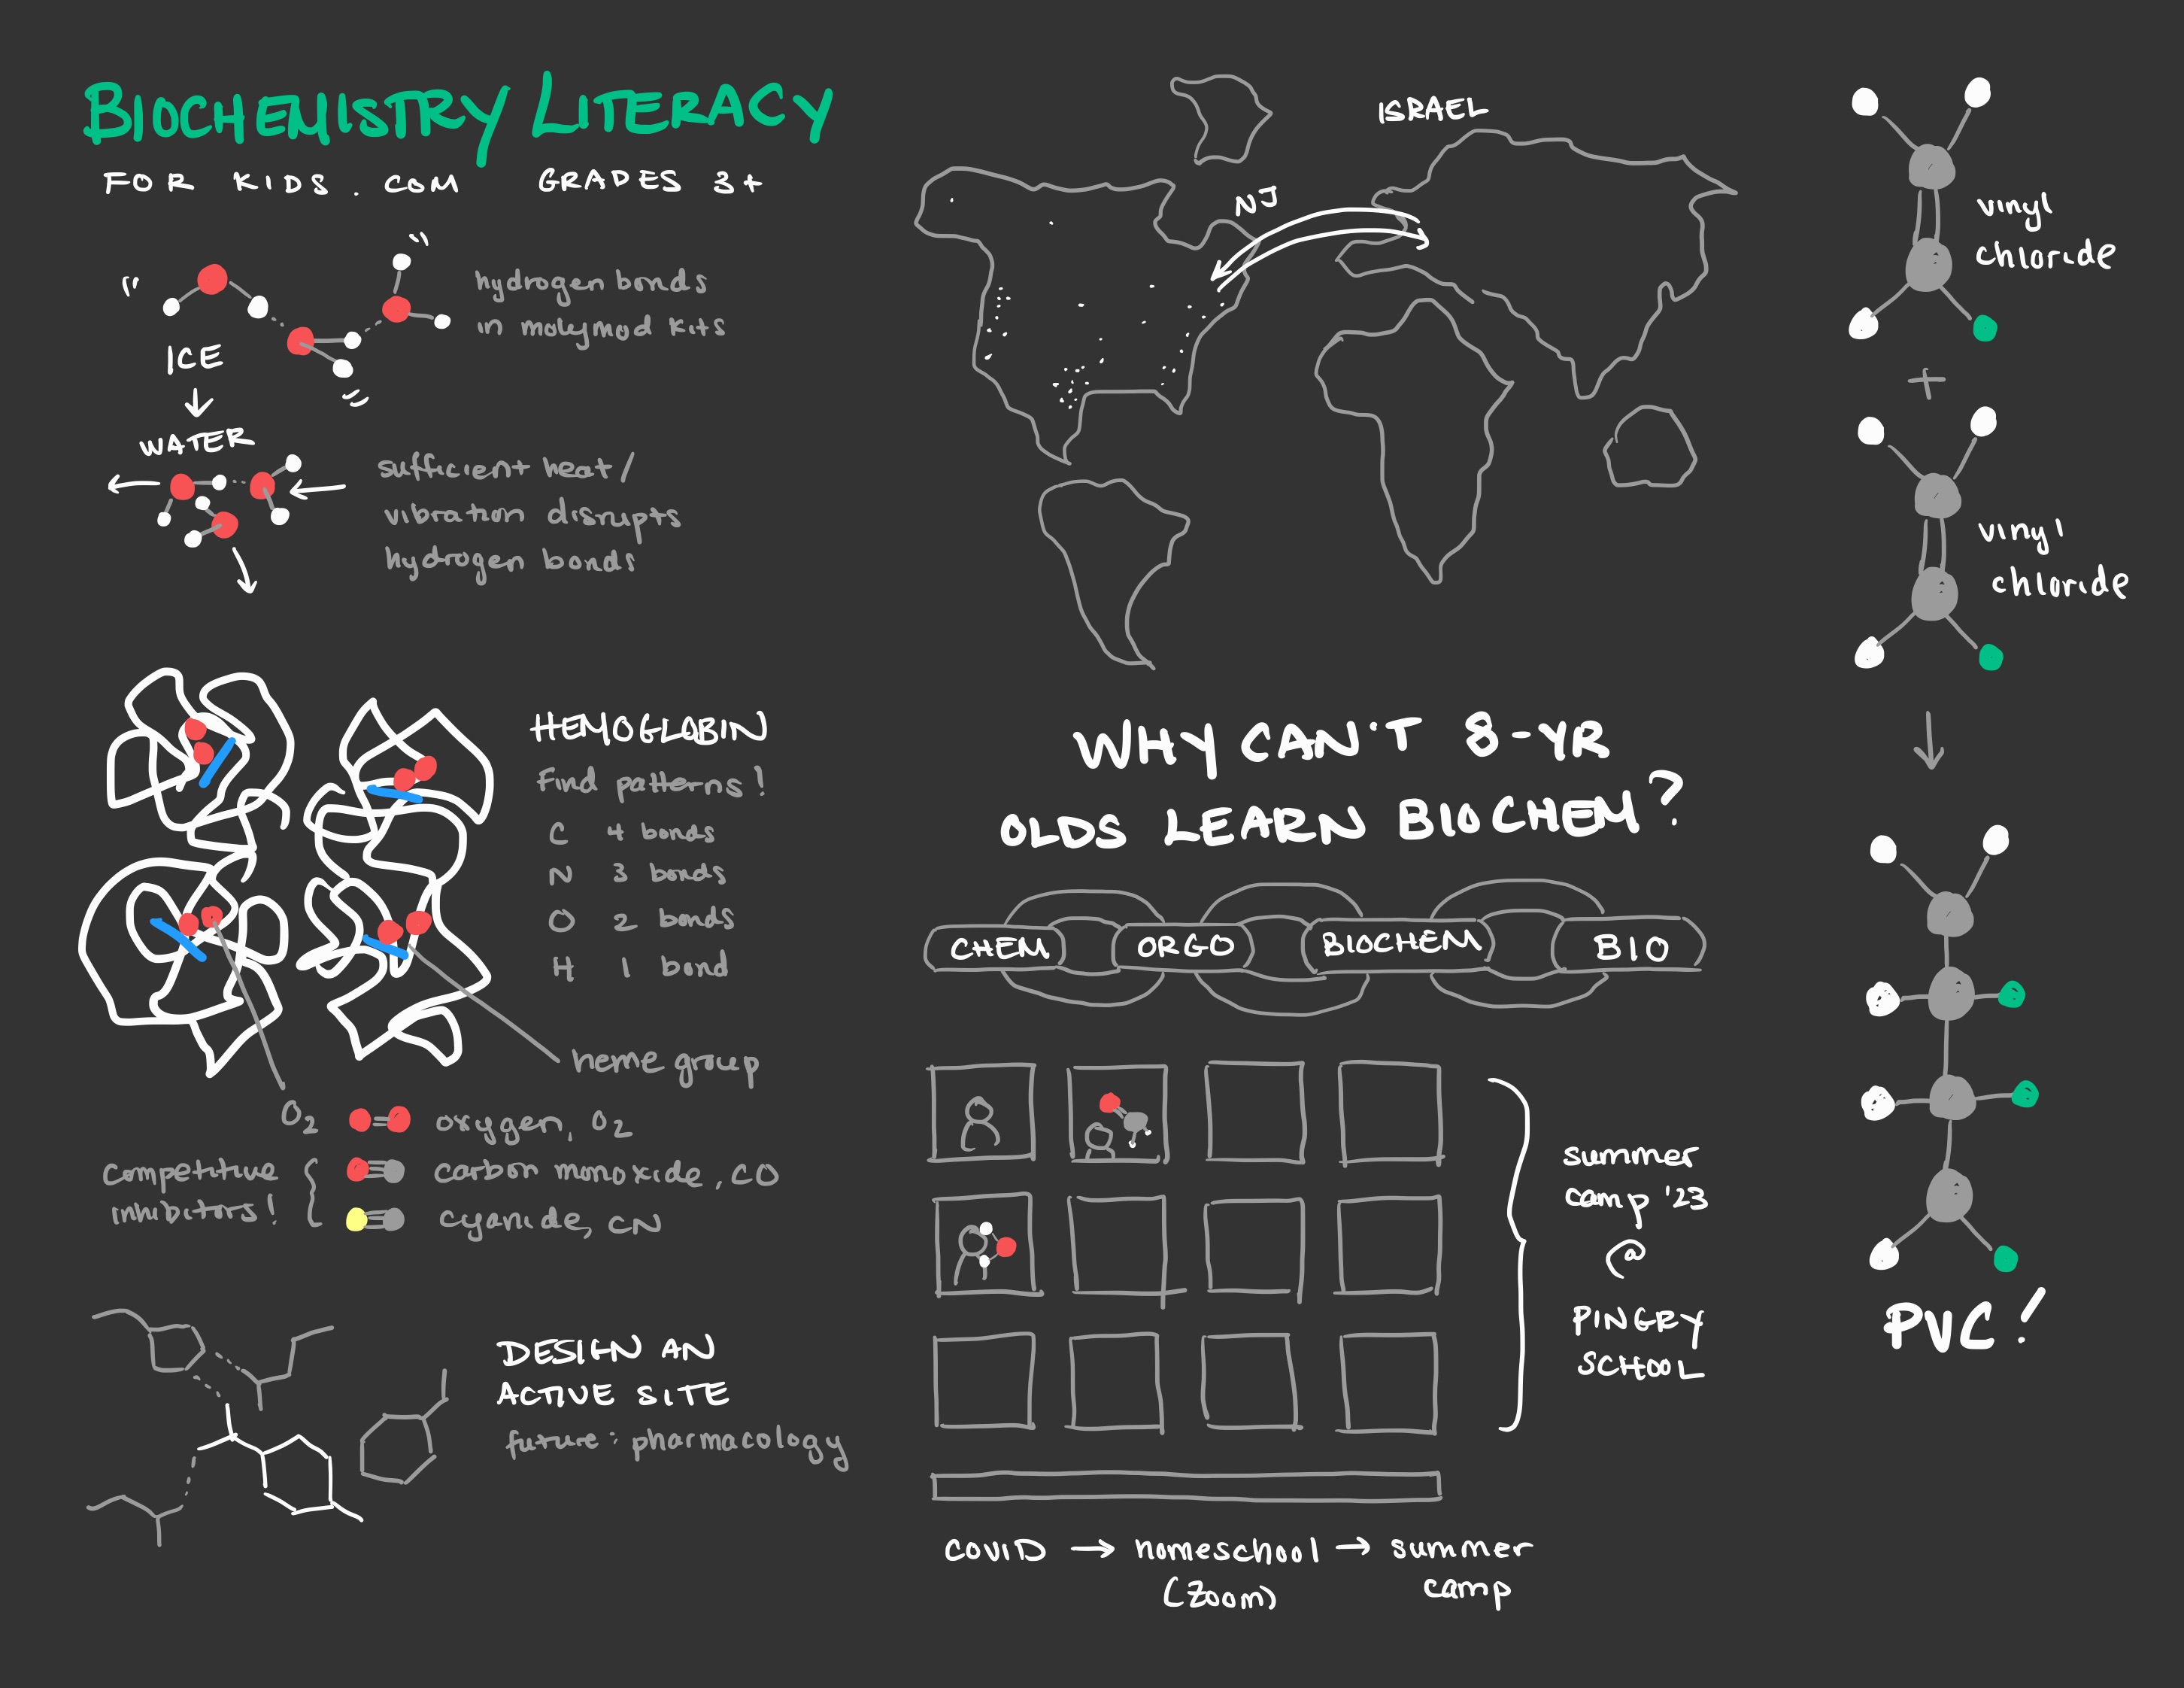 BIOCHEMISTRY LITERACY
FOR KIDS.COM GRADES 3+
hydrogen bonds
in molymod kits
ICE
WATER
sufficient heat/
vibration disrupts
hydrogen bonds
HEMOGLOBIN
find patterns!
C 4 bonds
N 3 bonds
O 2 bonds
H 1 bond
heme group
O2
oxygen, O2
competitive
inhibitors!
carbon monoxide, CO
cyanide, CN
DESIGN AN
ACTIVE SITE
future: pharmacology
ISRAEL
NJ
WHY CAN'T 8-YR
OLDS LEARN BIOCHEM?
CHEM
ORGO
BIOCHEM
BIO
summer
camp '23
@
PINGRY
SCHOOL
COVID → homeschool → summer
(Zoom) camp
vinyl
chloride
+
vinyl
chloride
PVC!